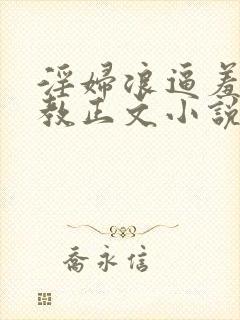 淫婦浪逼羞
教正文小說
喬永信